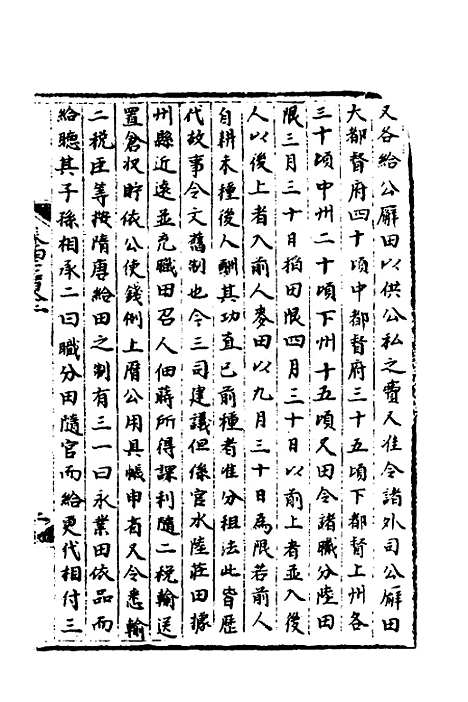 又各給公廨田以供公私之費又准令諸外司公廨田
大都督府四十頃中都督府三十五頃下都督上州各
三十頃中州二十頃下州十五頃又田令諸職分陸田
限三月三十日稻田限四月三十日以前上者並入後
人以後上者入前人麥田以九月三十日為限若前人
自耕未種後人酬其功直已前種者准分租法此皆歷
代故事令文舊制也今三司建議但係官水陸莊田據
州縣近遠並充職田召人佃蒔所得課利隨二稅輸送
置倉收貯依公使錢例上曆公用具帳申省又令悉輸
二稅臣等按隋唐給田之制有三一曰永業田依品而
給聽其子孫相承二曰職分田隨官而給更代相付三